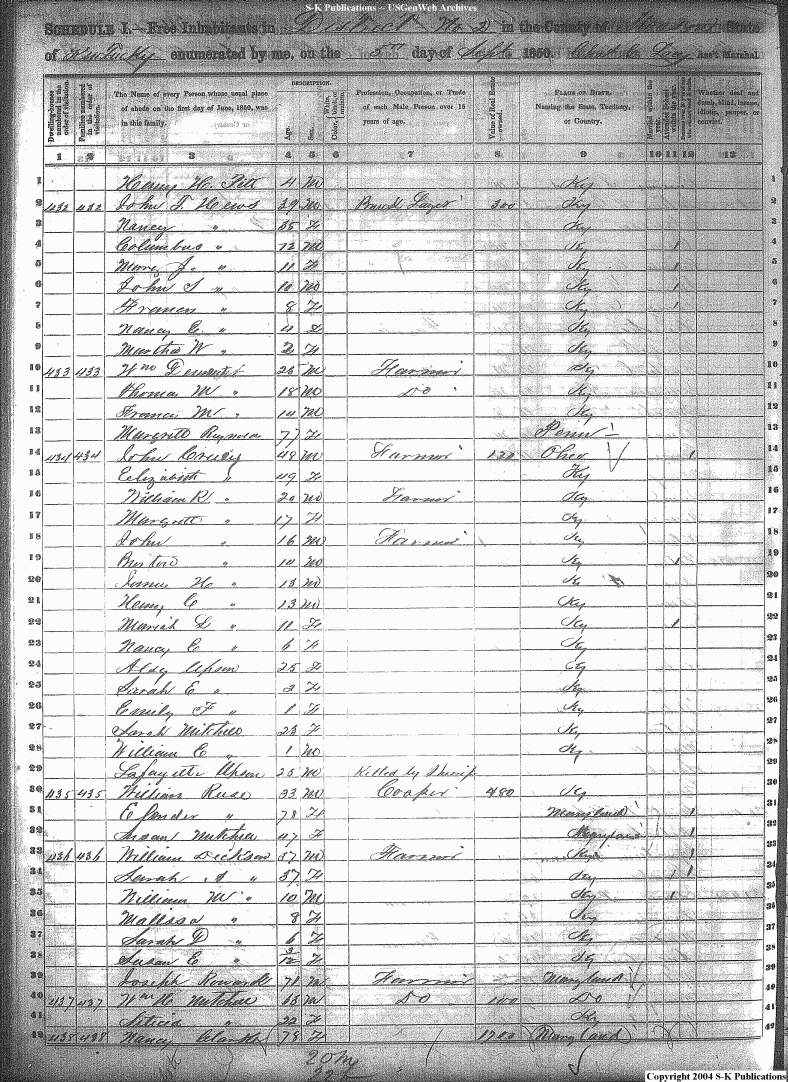 S-K Publications ~ USGenWeb Archives
SCHEDULE I.—Free Inhabitants in District No 2 in the County of State
of Kentucky enumerated by me, on the 5th day of Sept 1850. Ass't Marshal.
DESCRIPTION.
Dwelling-houses numbered in the order of visitation.
Families numbered in the order of visitation.
The Name of every Person whose usual place of abode on the first day of June, 1850, was in this family.
Age.
Sex.
Profession, Occupation, or Trade of each Male Person over 15 years of age.
Value of Real Estate owned.
PLACE OF BIRTH. Naming the State, Territory, or Country.
Married within the year.
Attended School within the year.
Whether deaf and dumb, blind, insane, idiotic, pauper, or convict.
1 2 3 4 5 6 7 8 9 10 11 12 13
1 Henry H. Pitt 4 M Ky 1
2 432 432 John T. Hews 39 M 300 Ky 2
3 Nancy " 35 F Ky 3
4 Columbus " 12 M Ky 1 4
5 Mary J. " 11 F Ky 1 5
6 John S " 10 M Ky 1 6
7 Frances " 8 F Ky 1 7
8 Nancy E. " 4 F Ky 8
9 Martha W " 2 F Ky 9
10 433 433 Wm 25 M Farmer Ky 10
11 Thomas M " 18 M Do Ky 11
12 Francis M " 14 M Ky 12
13 Margrett Reynolds 77 F Penn 13
14 434 434 John 48 M Farmer Ohio 1 14
15 Elizabeth " 49 F Ky 15
16 William R " 20 M Farmer Ky 16
17 Margrett " 17 F Ky 17
18 John " 16 M Farmer Ky 18
19 " 14 M Ky 1 19
20 James H " 13 M Ky 20
21 Henry C " 13 M Ky 21
22 Mariah L " 11 F Ky 1 22
23 Nancy E " 6 F Ky 23
24 Upson 25 F Ky 24
25 Sarah E " 3 F Ky 25
26 Emily F " 1 F Ky 26
27 Sarah Mitchell 23 F Ky 27
28 William E " 1 M Ky 28
29 Lafayette Upson 25 M Killed by 29
30 435 435 William Ruse 33 M Cooper 480 Ky 30
31 " 78 F Maryland 1 31
32 Susan Mitchell 47 F Maryland 1 32
33 436 436 William Dickson 37 M Farmer Ky 1 33
34 Sarah A " 37 F Ky 1 1 34
35 William M " 10 M Ky 1 35
36 Malissa " 8 F Ky 36
37 Sarah D " 6 F Ky 37
38 Susan E " 3/12 F Ky 38
39 Joseph 71 M Farmer Maryland 39
40 437 437 Wm H. Mitchell 63 M Do 100 Do 40
41 Leticia " 22 F Ky 41
438 438 Nancy Clark 78 F 1700 Maryland 42
20 M
22
Copyright 2004 S-K Publications